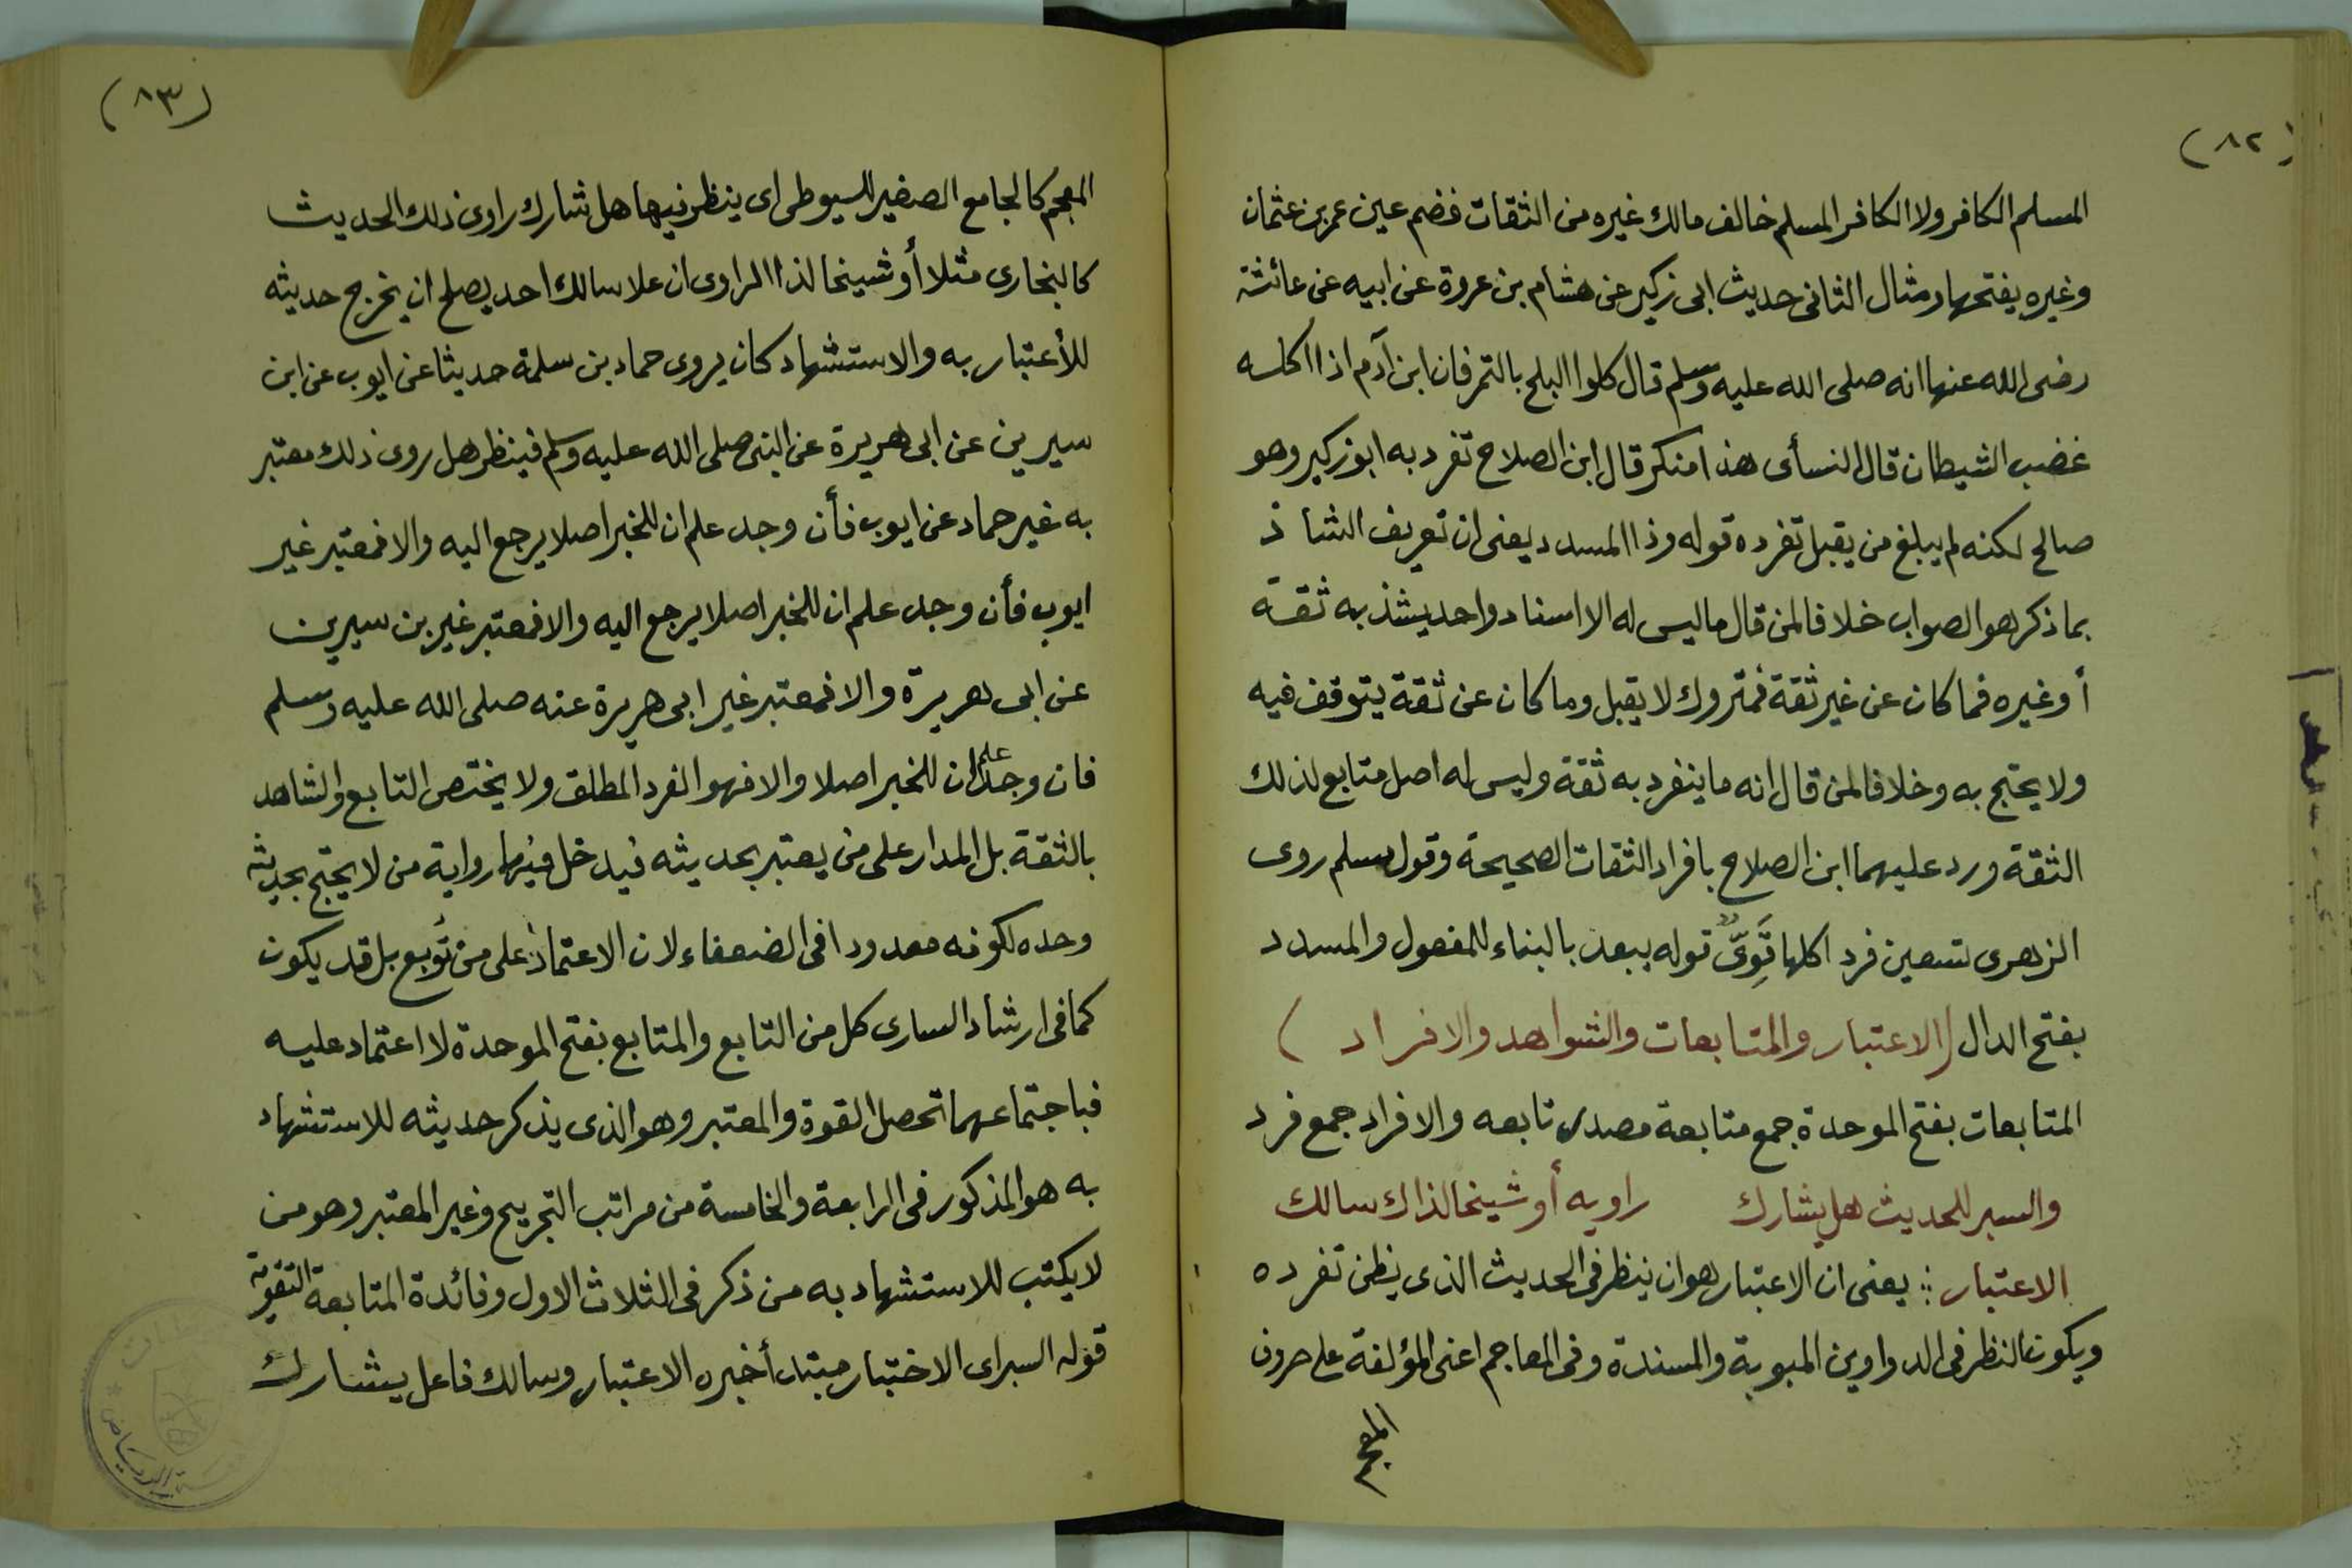 (٨٢)
المسلم الكافر ولا الكافر المسلم خالف مالك غيره من الثقات فضم عين عمر بن عثمان
وغيره يفتحها ومثال الثانى حديث ابى زكير عن هشام بن عروة عن ابيه عن عائشة
رضى الله عنها انه صلى الله عليه وسلم قال كلوا البلح بالتمر فان ابن آدم اذا اكله
غضب الشيطان قال النسأى هذا منكر قال ابن الصلاح تفرد به ابو زكير وهو
صالح لكنه لم يبلغ من يقبل تفرده قوله وذا المسدد يعنى ان تعريف الشاذ
بما ذكر هو الصواب خلافا لمن قال ما ليس له الا اسناد واحد يشذ به ثقة
أو غيره فما كان عن غير ثقة فمتروك لا يقبل وما كان عن ثقة يتوقف فيه
ولا يحتج به وخلافا لمن قال انه ما ينفرد به ثقة وليس له اصل متابع لذلك
الثقة ورد عليهما ابن الصلاح بافراد الثقات الصحيحة وقول مسلم روى
الزهرى تسعين فردا كلها قَوِىٌّ قوله يبعد بالبناء للمفعول والمسدد
بفتح الدال (الاعتبار والمتابعات والشواهد والافراد)
المتابعات بفتح الموحدة جمع متابعة مصدر تابعه والافراد جمع فرد
والسبر للحديث هل يشارك راويه أو شيخا لذاك سالك
الاعتبار ؛ يعنى ان الاعتبار هو ان ينظر فى الحديث الذى يظن تفرده
ويكون النظر فى الدواوين المبوبة والمسندة وفى المعاجم اعنى المؤلفة على حروف
المعجم
(٨٣)
المعجم كالجامع الصغير للسيوطى اى ينظر فيها هل شارك راوى ذلك الحديث
كالبخارى مثلا أو شيخا لذا الراوى ان علا سالك احد يصلح ان يخرج حديثه
للأعتبار به والاستشهاد كان يروى حماد بن سلمة حديثا عن ايوب عن ابن
سيرين عن ابى هريرة عن النبى صلى الله عليه وسلم فينظر هل روى ذلك معتبر
به غير حماد عن ايوب فأن وجد علم ان للخبر اصلا يرجع اليه والا فمعتبر غير
ايوب فأن وجد علم ان للخبر اصلا يرجع اليه والا فمعتبر غير بن سيرين
عن ابى هريرة والا فمعتبر غير ابى هريرة عنه صلى الله عليه وسلم
فان وجد علم ان للخبر اصلا والا فهو الفرد المطلق ولا يختص التابع والشاهد
بالثقة بل المدار على من يعتبر بحديثه فيدخل فيهما رواية من لا يحتج بحديثه
وحده لكونه معدودا فى الضعفاء لان الاعتماد على من تُوبع بل قد يكون
كما فى ارشاد السارى كل من التابع والمتابع بفتح الموحدة لا اعتماد عليه
فباجتماعهما تحصل القوة والمعتبر وهو الذى يذكر حديثه للاستشهاد
به هو المذكور فى الرابعة والخامسة من مراتب التجريح وغير المعتبر وهو من
لا يكتب للاستشهاد به من ذكر فى الثلاث الاول وفائدة المتابعة التقوية
قوله السبر اى الاختبار مبتدأ خبره الاعتبار وسالك فاعل يشارك